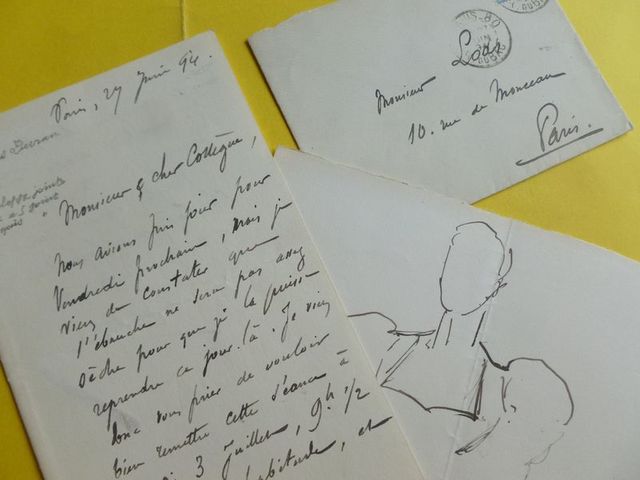 Paris, 27 Juin 94.
Monsieur & cher Collègue,
Nous avions pris jour pour
Vendredi prochain, mais je
viens de constater que
l'ébauche ne sera pas assez
sèche pour que je la puisse
reprendre ce jour-là. Je viens
donc vous prier de vouloir
bien remettre cette séance à
3 juillet, 9h 1/2
habitude, et
Monsieur
10. rue de Monceau
Paris.